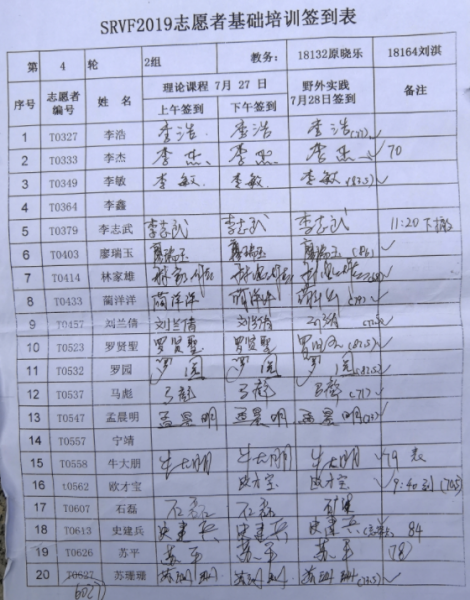 SRVF2019志愿者基础培训签到表
第 4 轮 2组 教务: 18132原晓乐 18164刘淇
序号 志愿者编号 姓 名 理论课程 7月 27 日 野外实践 7月28日签到 备注
上午签到 下午签到
1 T0327 李浩 李浩 李浩 李浩
2 T0333 李杰 李杰 李杰 李杰 70
3 T0349 李敏 李敏 李敏 李敏 (83.5)
4 T0364 李鑫
5 T0379 李志武 李志武 李志武 李志武 11:20下撤
6 T0403 廖瑞玉 廖瑞玉 廖瑞玉 廖瑞玉 (86)
7 T0414 林家雄 林家雄 林家雄 林家雄
8 T0433 蔺洋洋 蔺洋洋 蔺洋洋
9 T0457 刘兰倩 刘兰倩 刘兰倩 刘倩
10 T0523 罗贤聖 罗贤聖 罗贤聖 (81.5)
11 T0532 罗园 罗园 罗园 罗园
12 T0537 马彪 马彪 马彪 马彪 (71)
13 T0547 孟晨明 孟晨明 孟晨明 孟晨明
14 T0557 宁靖
15 T0558 牛大朋 牛大朋 牛大朋 牛大朋 79
16 t0562 欧才宝 欧才宝 欧才宝 9:40到
17 T0607 石磊 石磊 石磊
18 T0613 史建兵 史建兵 史建兵 史建兵 84
19 T0626 苏平 苏平 苏平 苏平 (78)
20 T0627 苏珊珊 苏珊珊 苏珊珊 苏珊珊 (73.5)